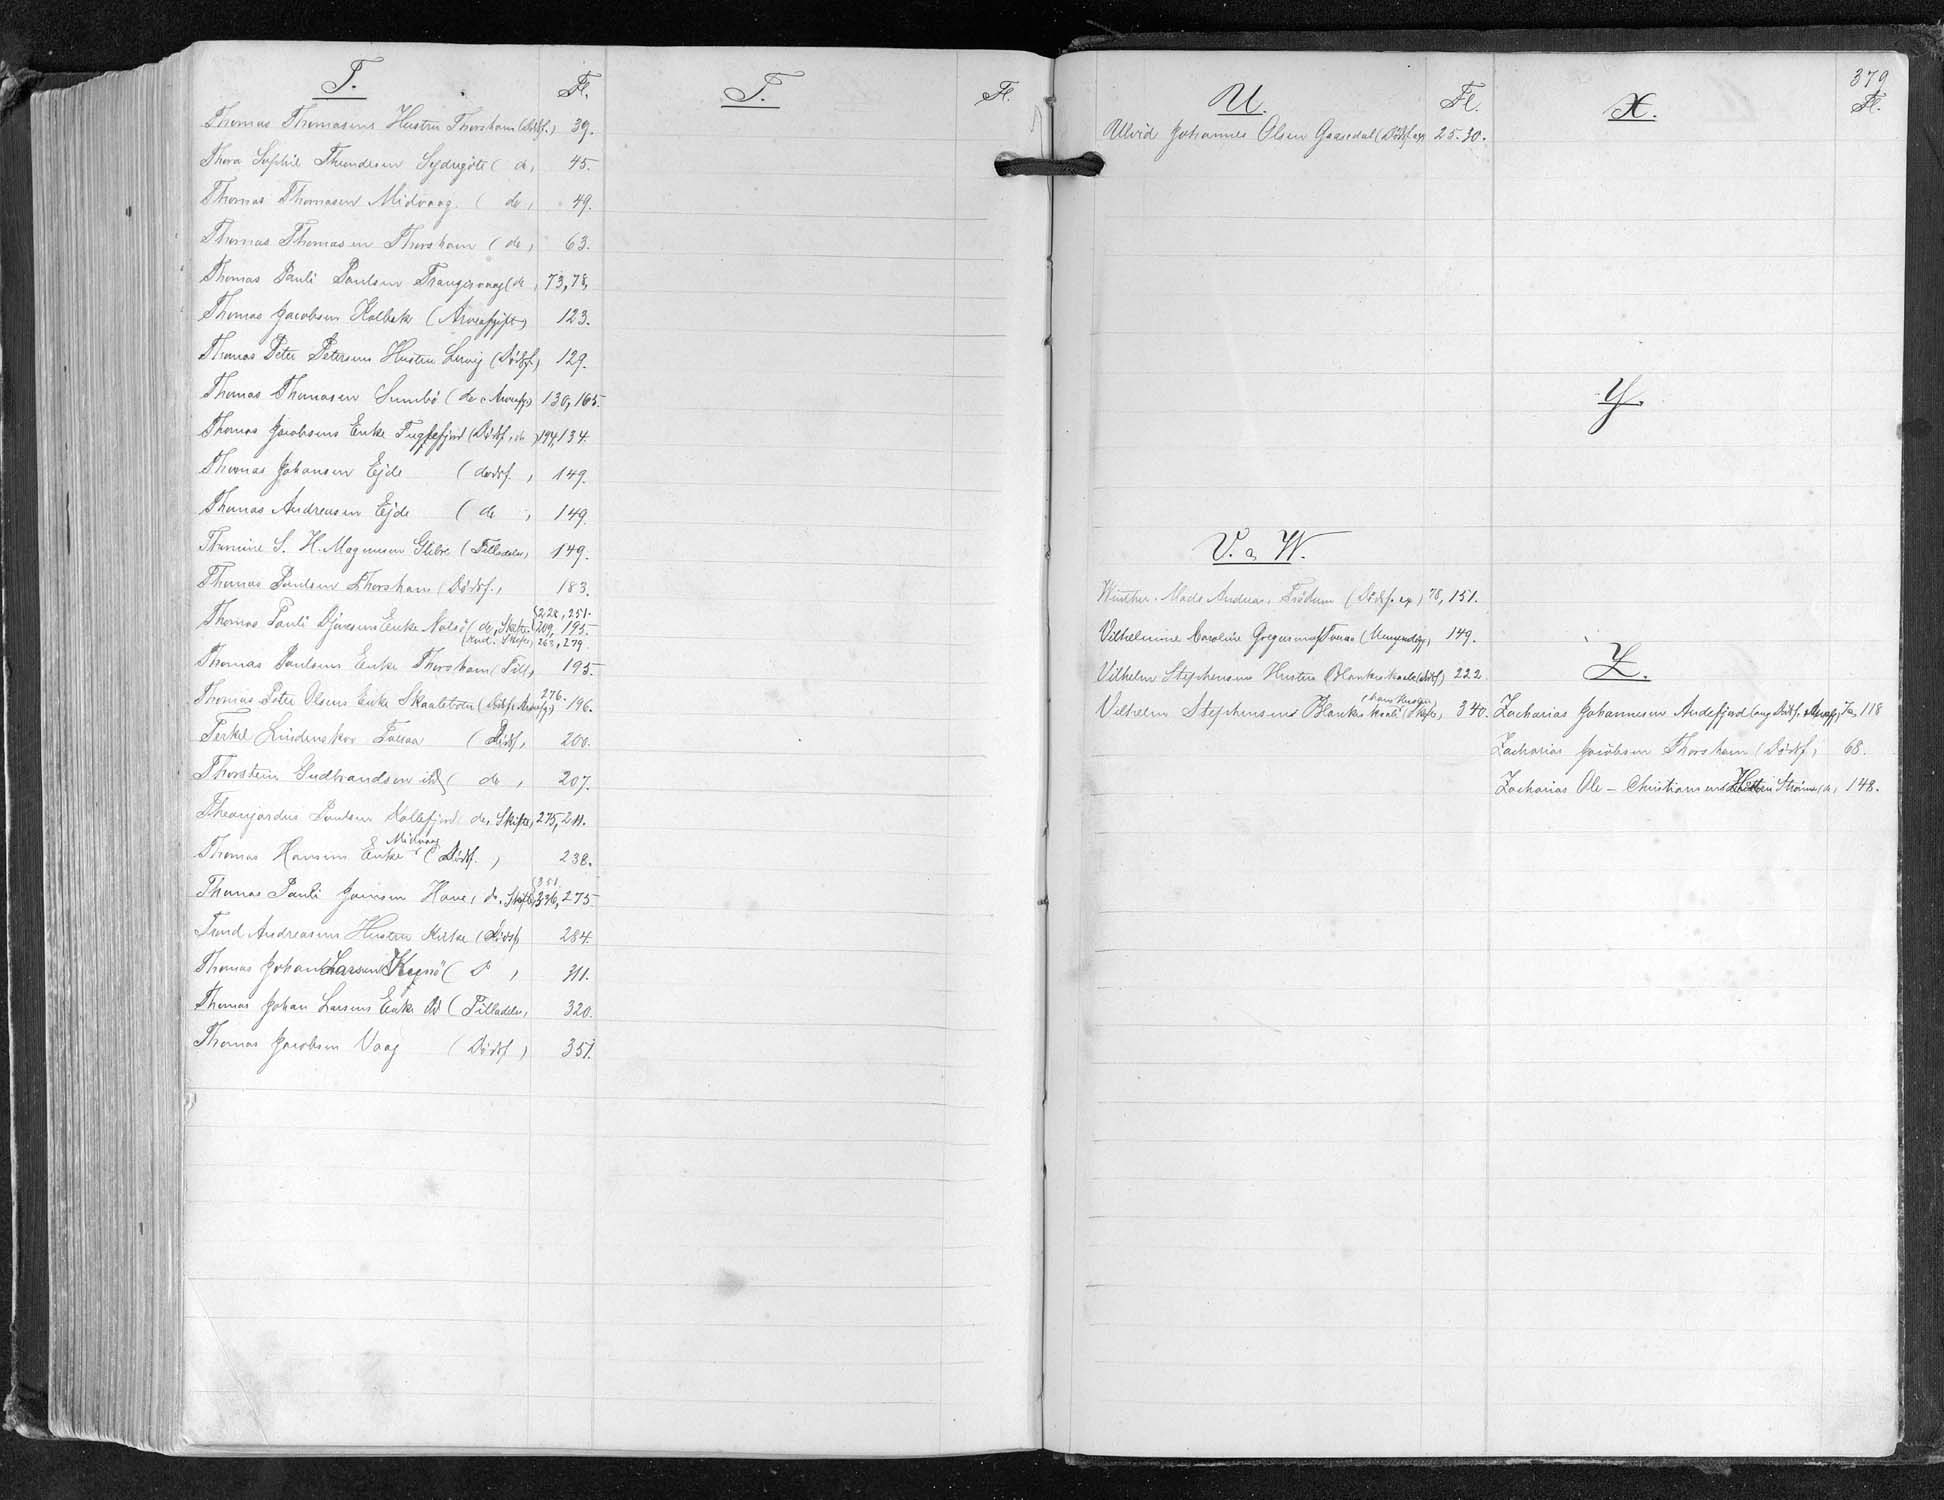 T.
Fl.
Thomas Thomasens Hustru Thorshavn (dödsf.) 39.
Thora Sophie Sydregöte ( do, 45.
Thomas Thomasen Midvaag. ( do, 49.
Thomas Thomasen Thorshavn ( do, 63.
Thomas Pauli Poulsen Trangisvaag (do, 73, 78,
Thomas Jacobsen Kolbak (Arveafgift) 123.
Thomas Peter Petersens Hustru Lervig (Dödsf.) 129.
Thomas Thomasen Sumbö (do, Arveafg) 130, 165.
Thomas Jacobsens Enke Fuglefjord (Dödsf, do ) 194, 134.
Thomas Johansen Ejde (dödsf. , 149.
Thomas Andreasen Ejde ( do , 149.
S. H. Magnusen Glibre (Tilladelse, 149.
Thomas Poulsen Thorshavn (Dödsf., 183.
Thomas Pauli Enke Nolsö (do, Skifte. 209, 195.
224, 251.
Skifte, 263, 279.
Thomas Poulsens Enke Thorshavn (Till, 195.
Thomas Peter Olsens Enke Skaaletofte (Dödsf. Arveafg.) 276. 196.
Terkel Lindenskov Famaa (Dödsf, 200.
Thorstein Gudbrandsen ibd ( do , 207.
Poulsen Kollefjord do, Skifte, 275, 211.
Thomas Hansens Enke Midvaag (Dödsf. ) 238.
Thomas Pauli Joensen Hove, do, Skifte 336, 275.
351
Trond Andreasens Hustru Kirke (Dödsf) 284.
Thomas Johan Larsen ( do , 311.
Thomas Johan Larsens Enke ibd (Tilladelse, 320.
Thomas Jacobsen Vaag (Dödsf ) 351.
T.
Fl.
U.
Fl.
Ulvid Johannes Olsen Gaasedal (Dödsf. 25. 30.
V. & W.
Winther. Mads Andreas, Frödum (Dödsf. ) 78, 151.
Vilhelmine Caroline 149.
Vilhelm Stephensens Hustru Blankeskaale (Dödsf) 222.
Vilhelm Stephensens Blankeskaale (Skifte, 340.
379
X.
Fl.
Y.
Z.
Zacharias Johannesen Andefjord 118
Zacharias Jacobsen Thorshavn (Dödsf, 68.
Zacharias Ole - Christiansens (do, 148.